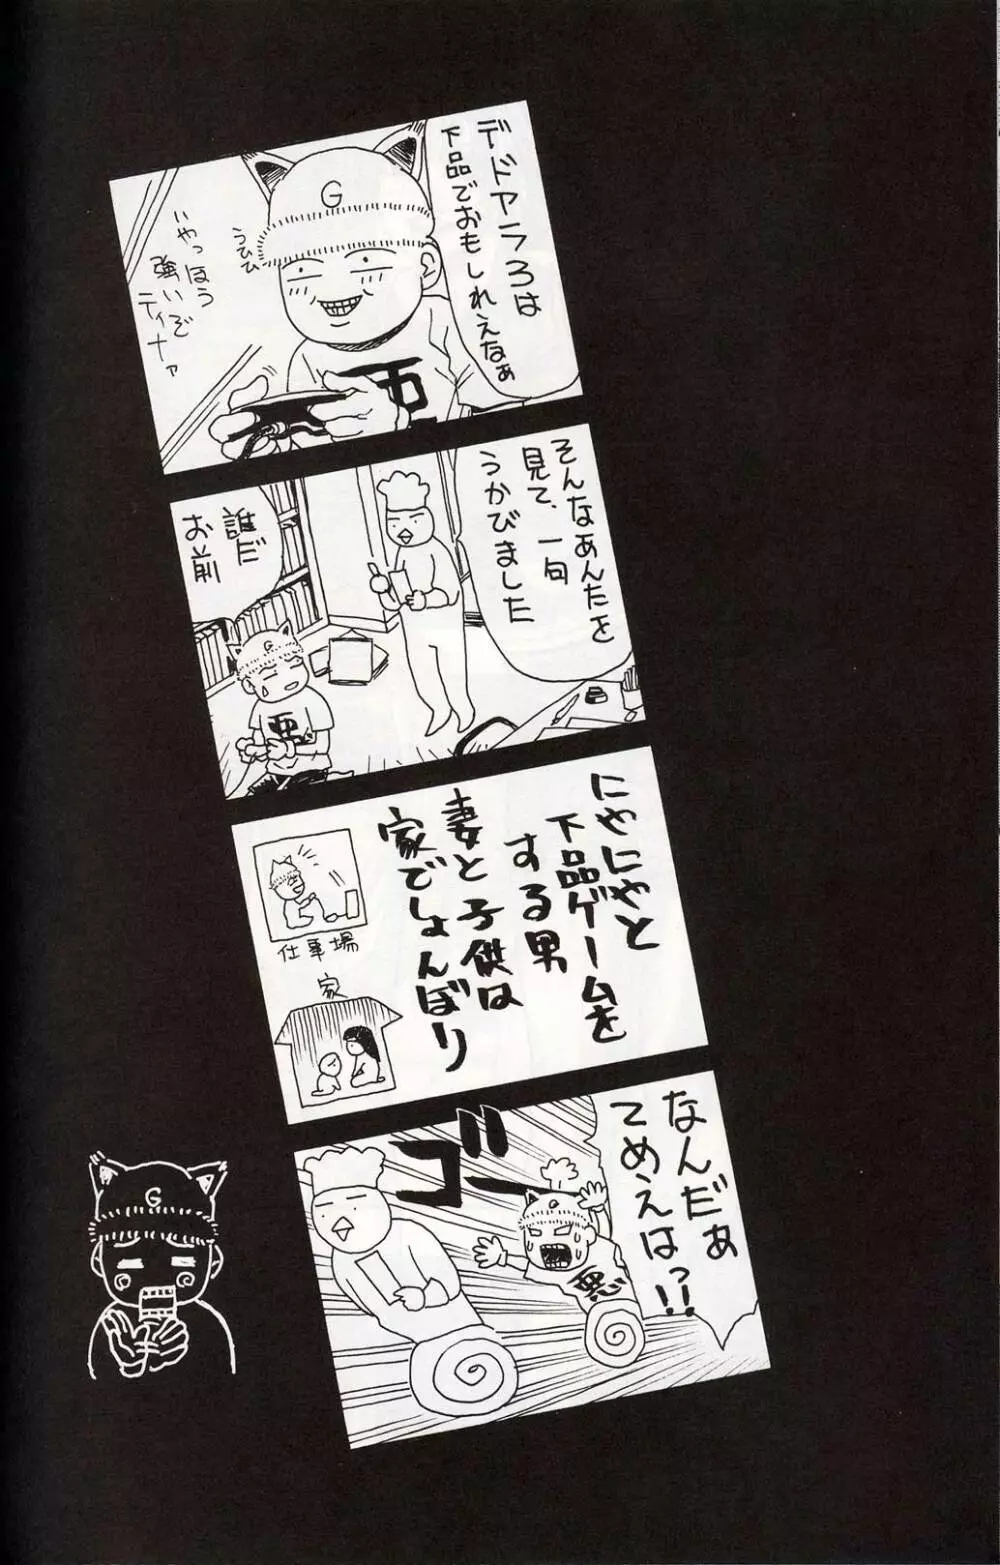 デドアラ3は
下品でおもしれえなぁ
G
うひひ
やっほう
強いぞ
ティナァ
悪
そんなあんたを
見て、一句
うかびました
誰だ
お前
G
悪
にやにやと
下品ゲームを
する男
妻と子供は
家でしょんぼり
仕事場
家
なんだぁ
てめえは!!
ゴー
G
悪
G